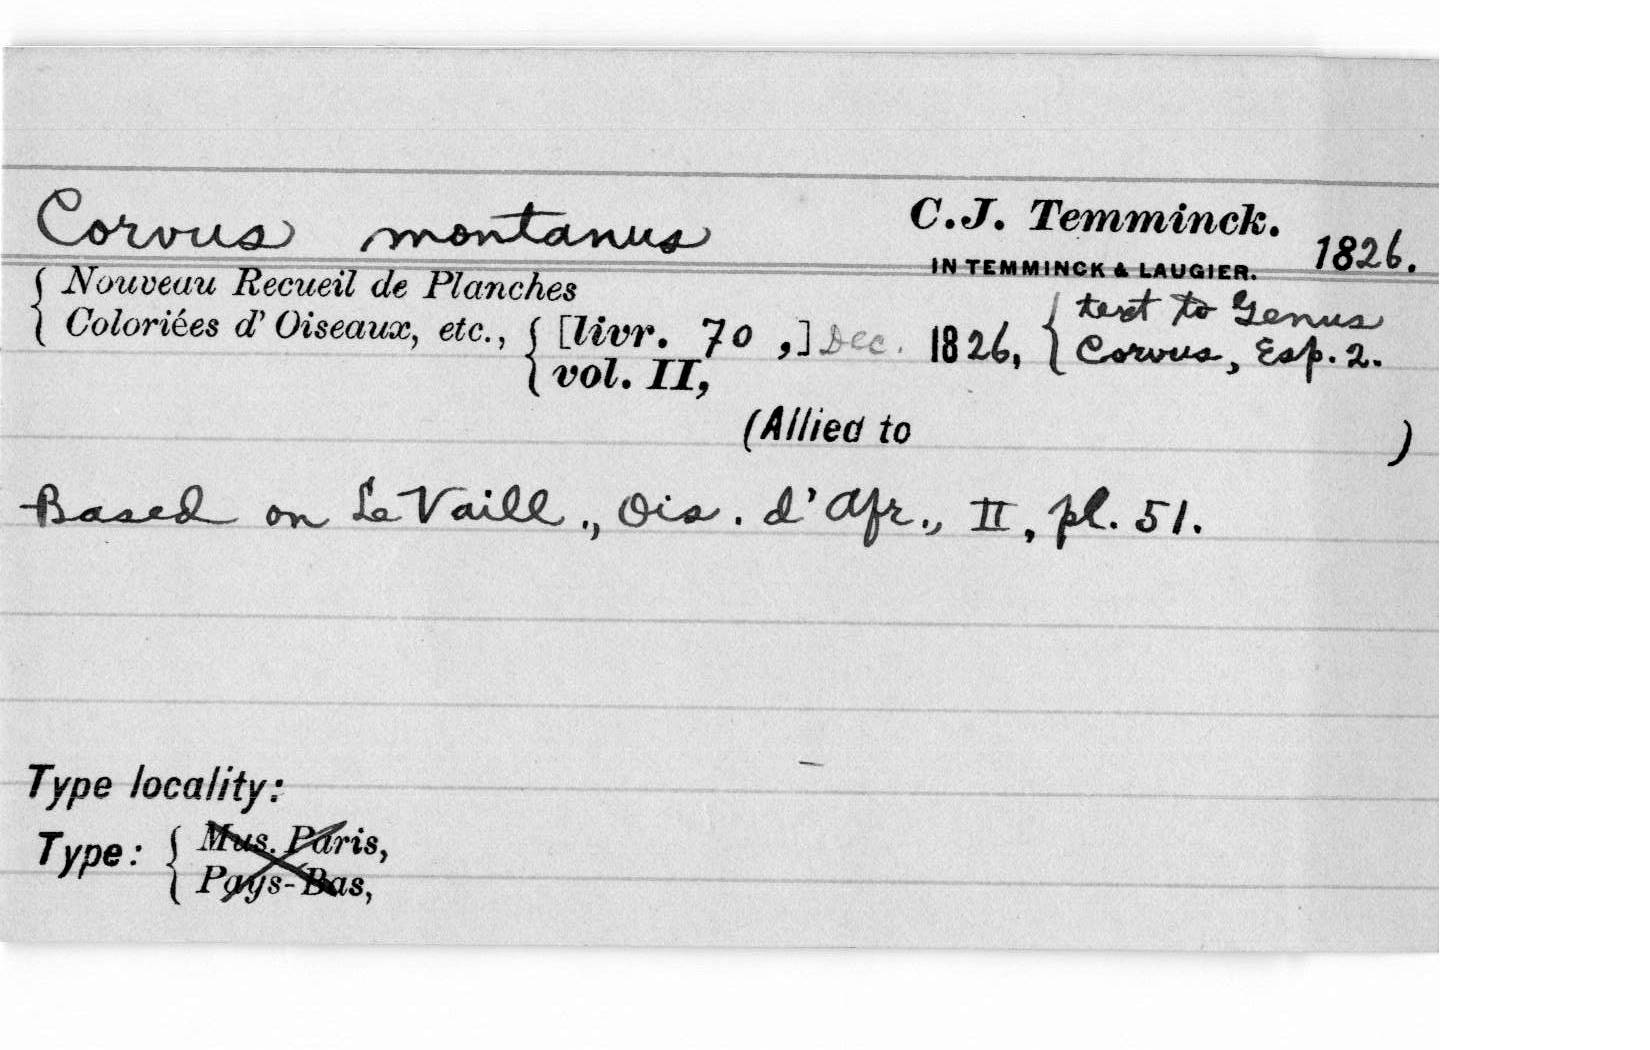 Corvus montanus C.J. Temminck. 1826.
IN TEMMINCK & LAUGIER.
{ Nouveau Recueil de Planches
Coloriées d' Oiseaux, etc., { [livr. 70 ,] Dec. 1826, { text to Genus
vol. II, Corvus, Esp. 2.
(Allied to )
Based on Le Vaill., Ois. d'Afr., II, pl. 51.
Type locality:
Type: { Mus. Paris,
Pays-Bas,